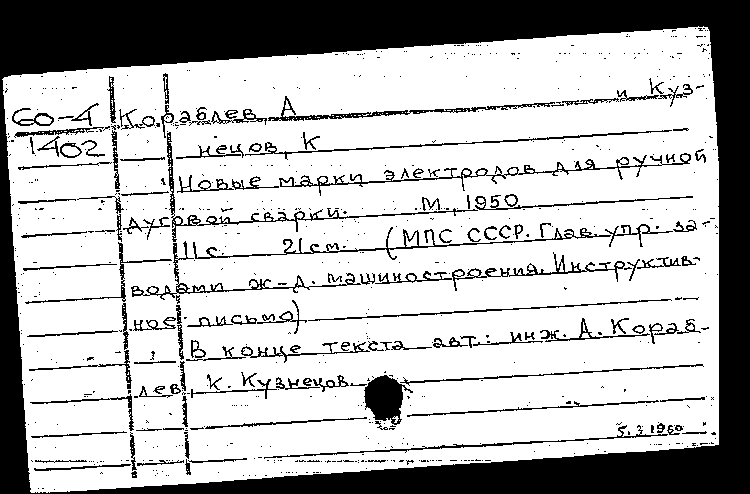 60-4 Кораблев, А и Куз-
1402 нецов, К
Новые марки электродов для ручной
дуговой сварки. М., 1950
11 с. 21 см. (МПС СССР. Глав. упр. за-
водами ж-д. машиностроения. Инструктив-
ное письмо)
В конце текста авт.: инж. А. Кораб-
лев, К. Кузнецов.
5.3.1960